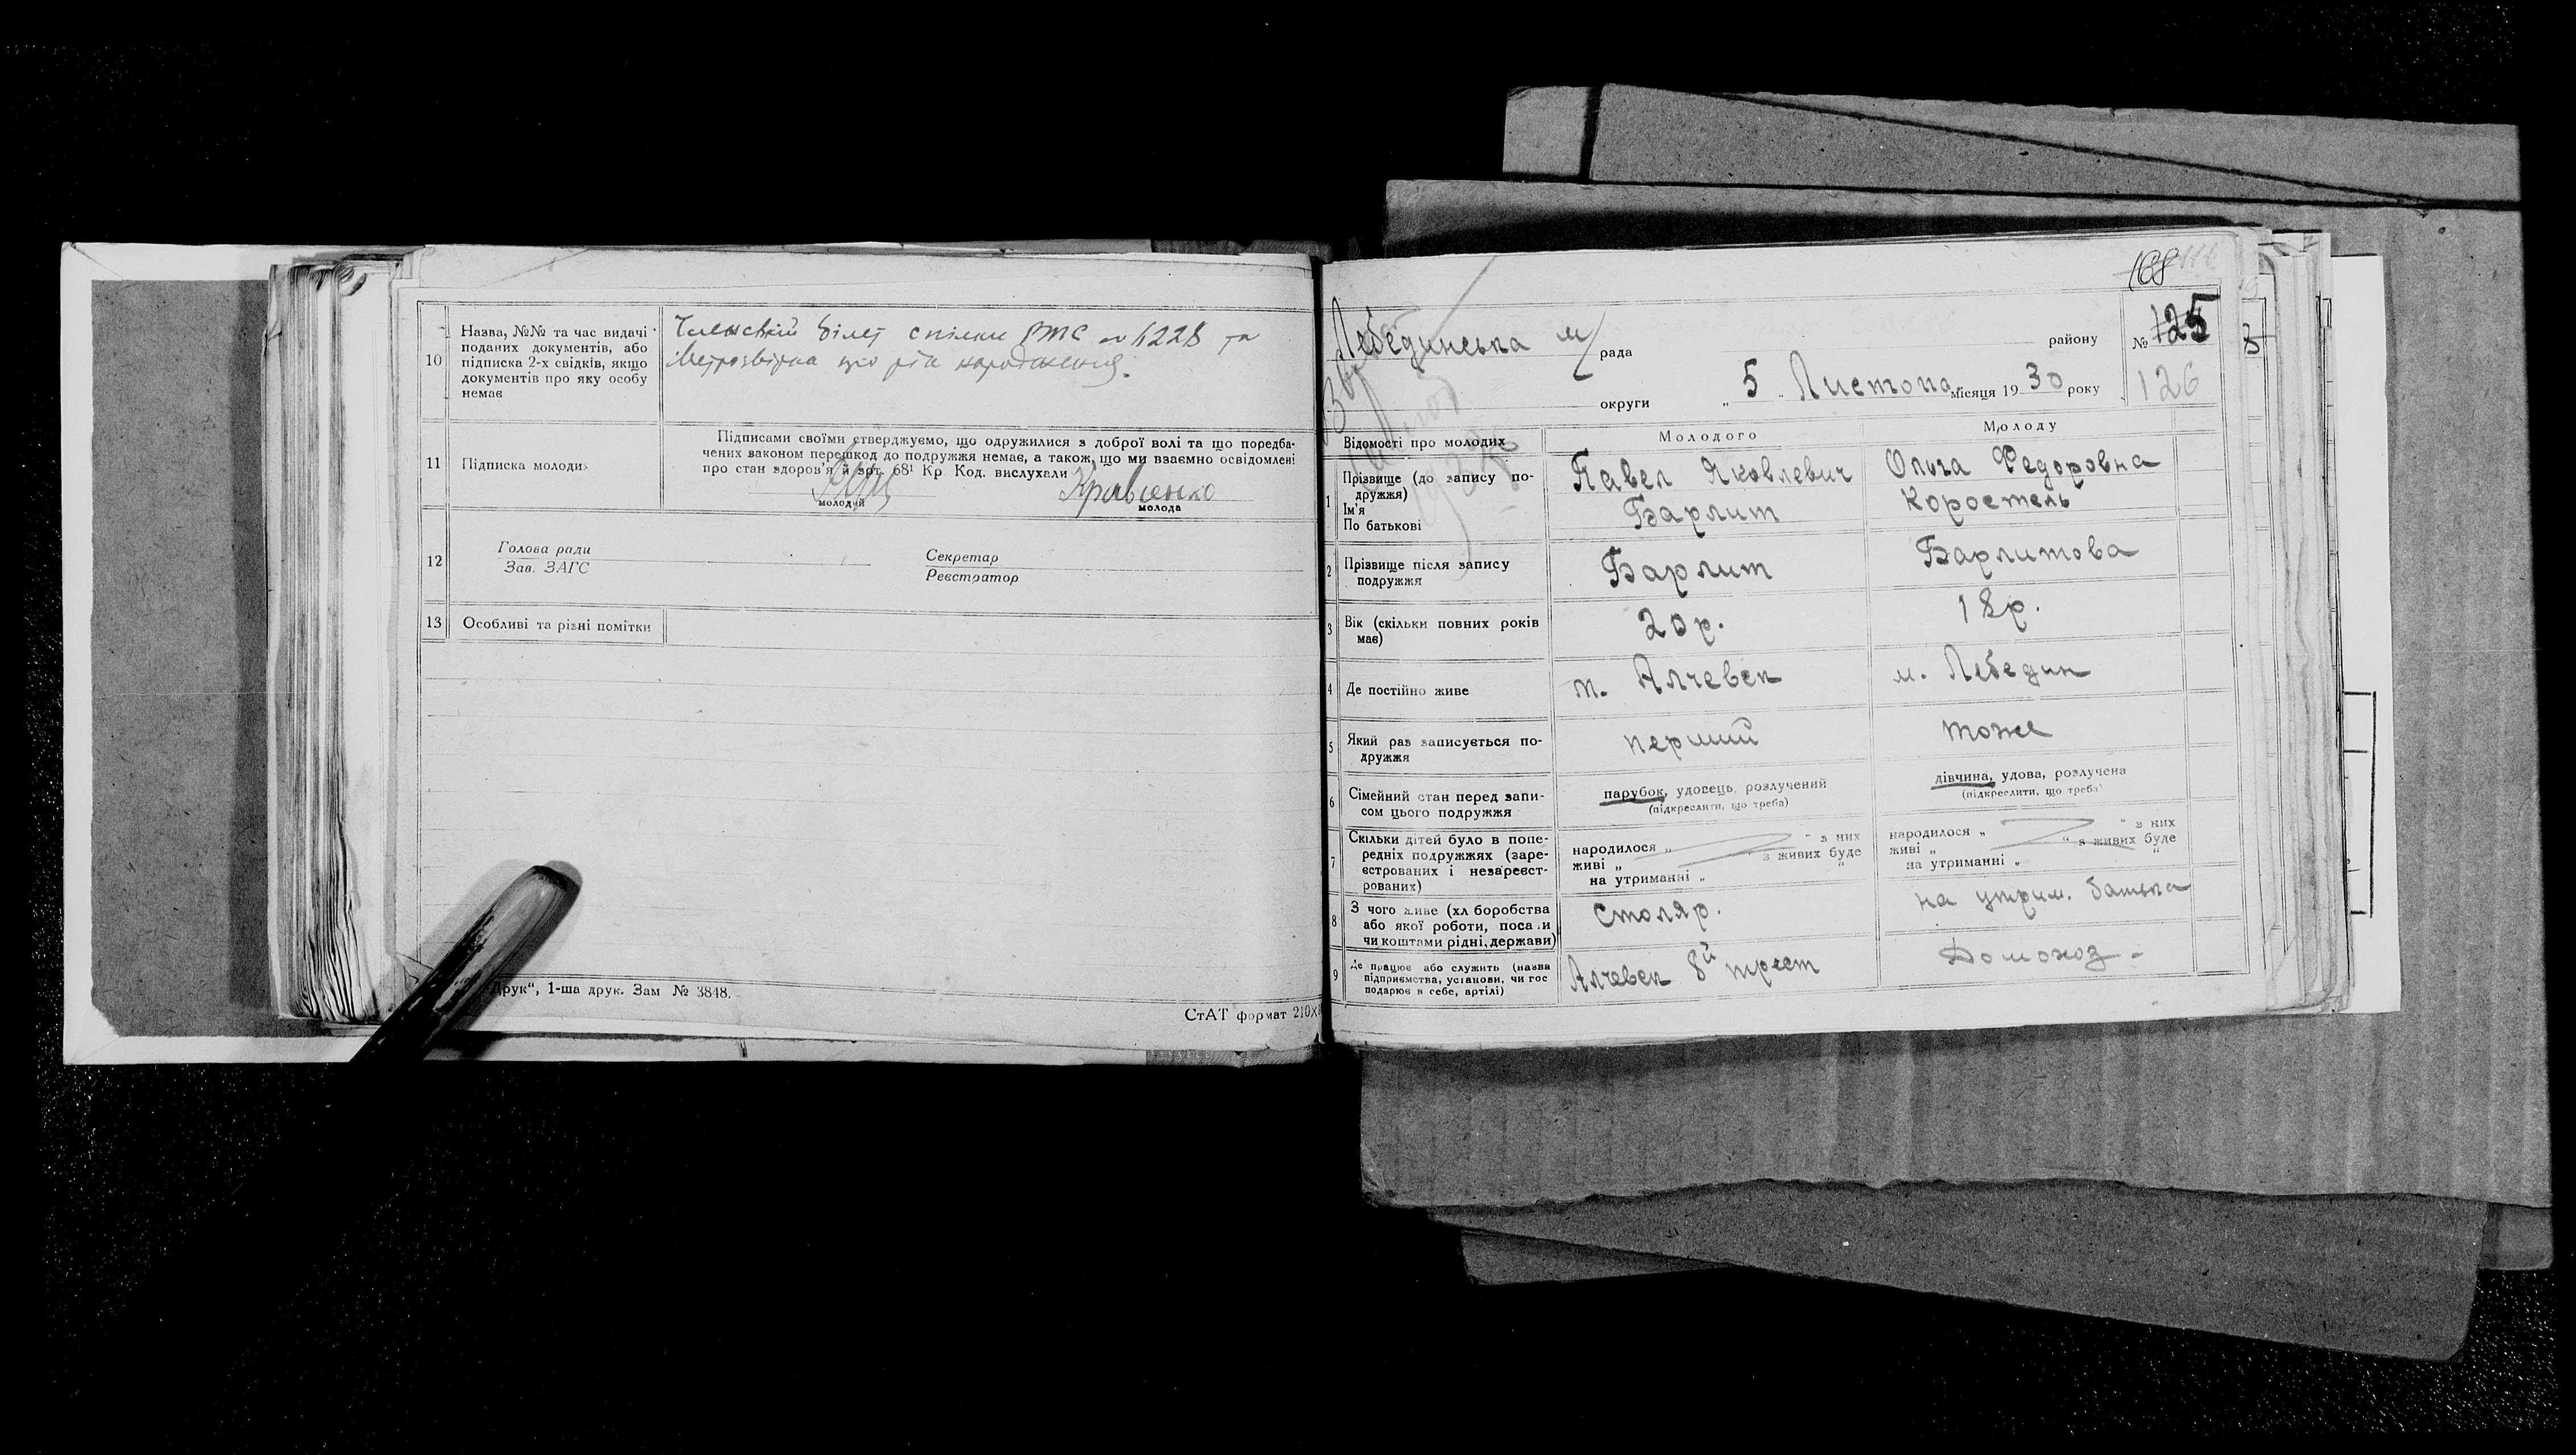 10
Назва, №№ та час видачі
поданих документів, або
підписка 2-х свідків, якщо
документів про яку особу
немає
Членській білет спілки РМС № 6228 та
що рік народження.
11
Підписка молодих
Підписами своїми стверджуємо, що одружилися з доброї волі та що поредба-
чених законом перешкод до подружжя немає, а також, що ми взаємно освідомлені
про стан здоров'я й арт. 68¹ Кр Код. вислухали
Кравченко
молодий
молода
12
Голова ради
Зав. ЗАГС
Секретар
Реєстратор
13
Особливі та різні помітки
Друк“, 1-ша друк. Зам № 3848.
СтАТ формат 210×
Лебединська м
рада
району
№ 125
126
168
округи
„ 5 „ Листопа місяця 1930 року
Відомості про молодих
Молодого
Молоду
1
Прізвище (до запису по-
дружжя)
Ім'я
По батькові
Павел Яковлевич
Барлит
Ольга Федоровна
Коростель
2
Прізвище після запису
подружжя
Барлит
Барлитова
3
Вік (скільки повних років
має)
20 р.
18 р.
4
Де постійно живе
м. Алчевск
м. Лебедин
5
Який раз записується по-
дружжя
перший
тоже
6
Сімейний стан перед запи-
сом цього подружжя
парубок, удовець, розлучений
(підкреслити, що треба)
дівчина, удова, розлучена
(підкреслити, що треба)
7
Скільки дітей було в попе-
редніх подружжях (заре-
єстрованих і незареєст-
рованих)
народилося „ “ з них
живі „ “ з живих буде
на утриманні „ “
народилося „ “ з них
живі „ “ з живих буде
на утриманні „ “
8
З чого живе (хліборобства
або якої роботи, посади
чи коштами рідні, держави)
Столяр.
на утрим. батька
9
Де працює або служить (назва
підприємства, установи, чи гос
подарює в себе, артілі)
Алчевск 8й трест
Домохоз.